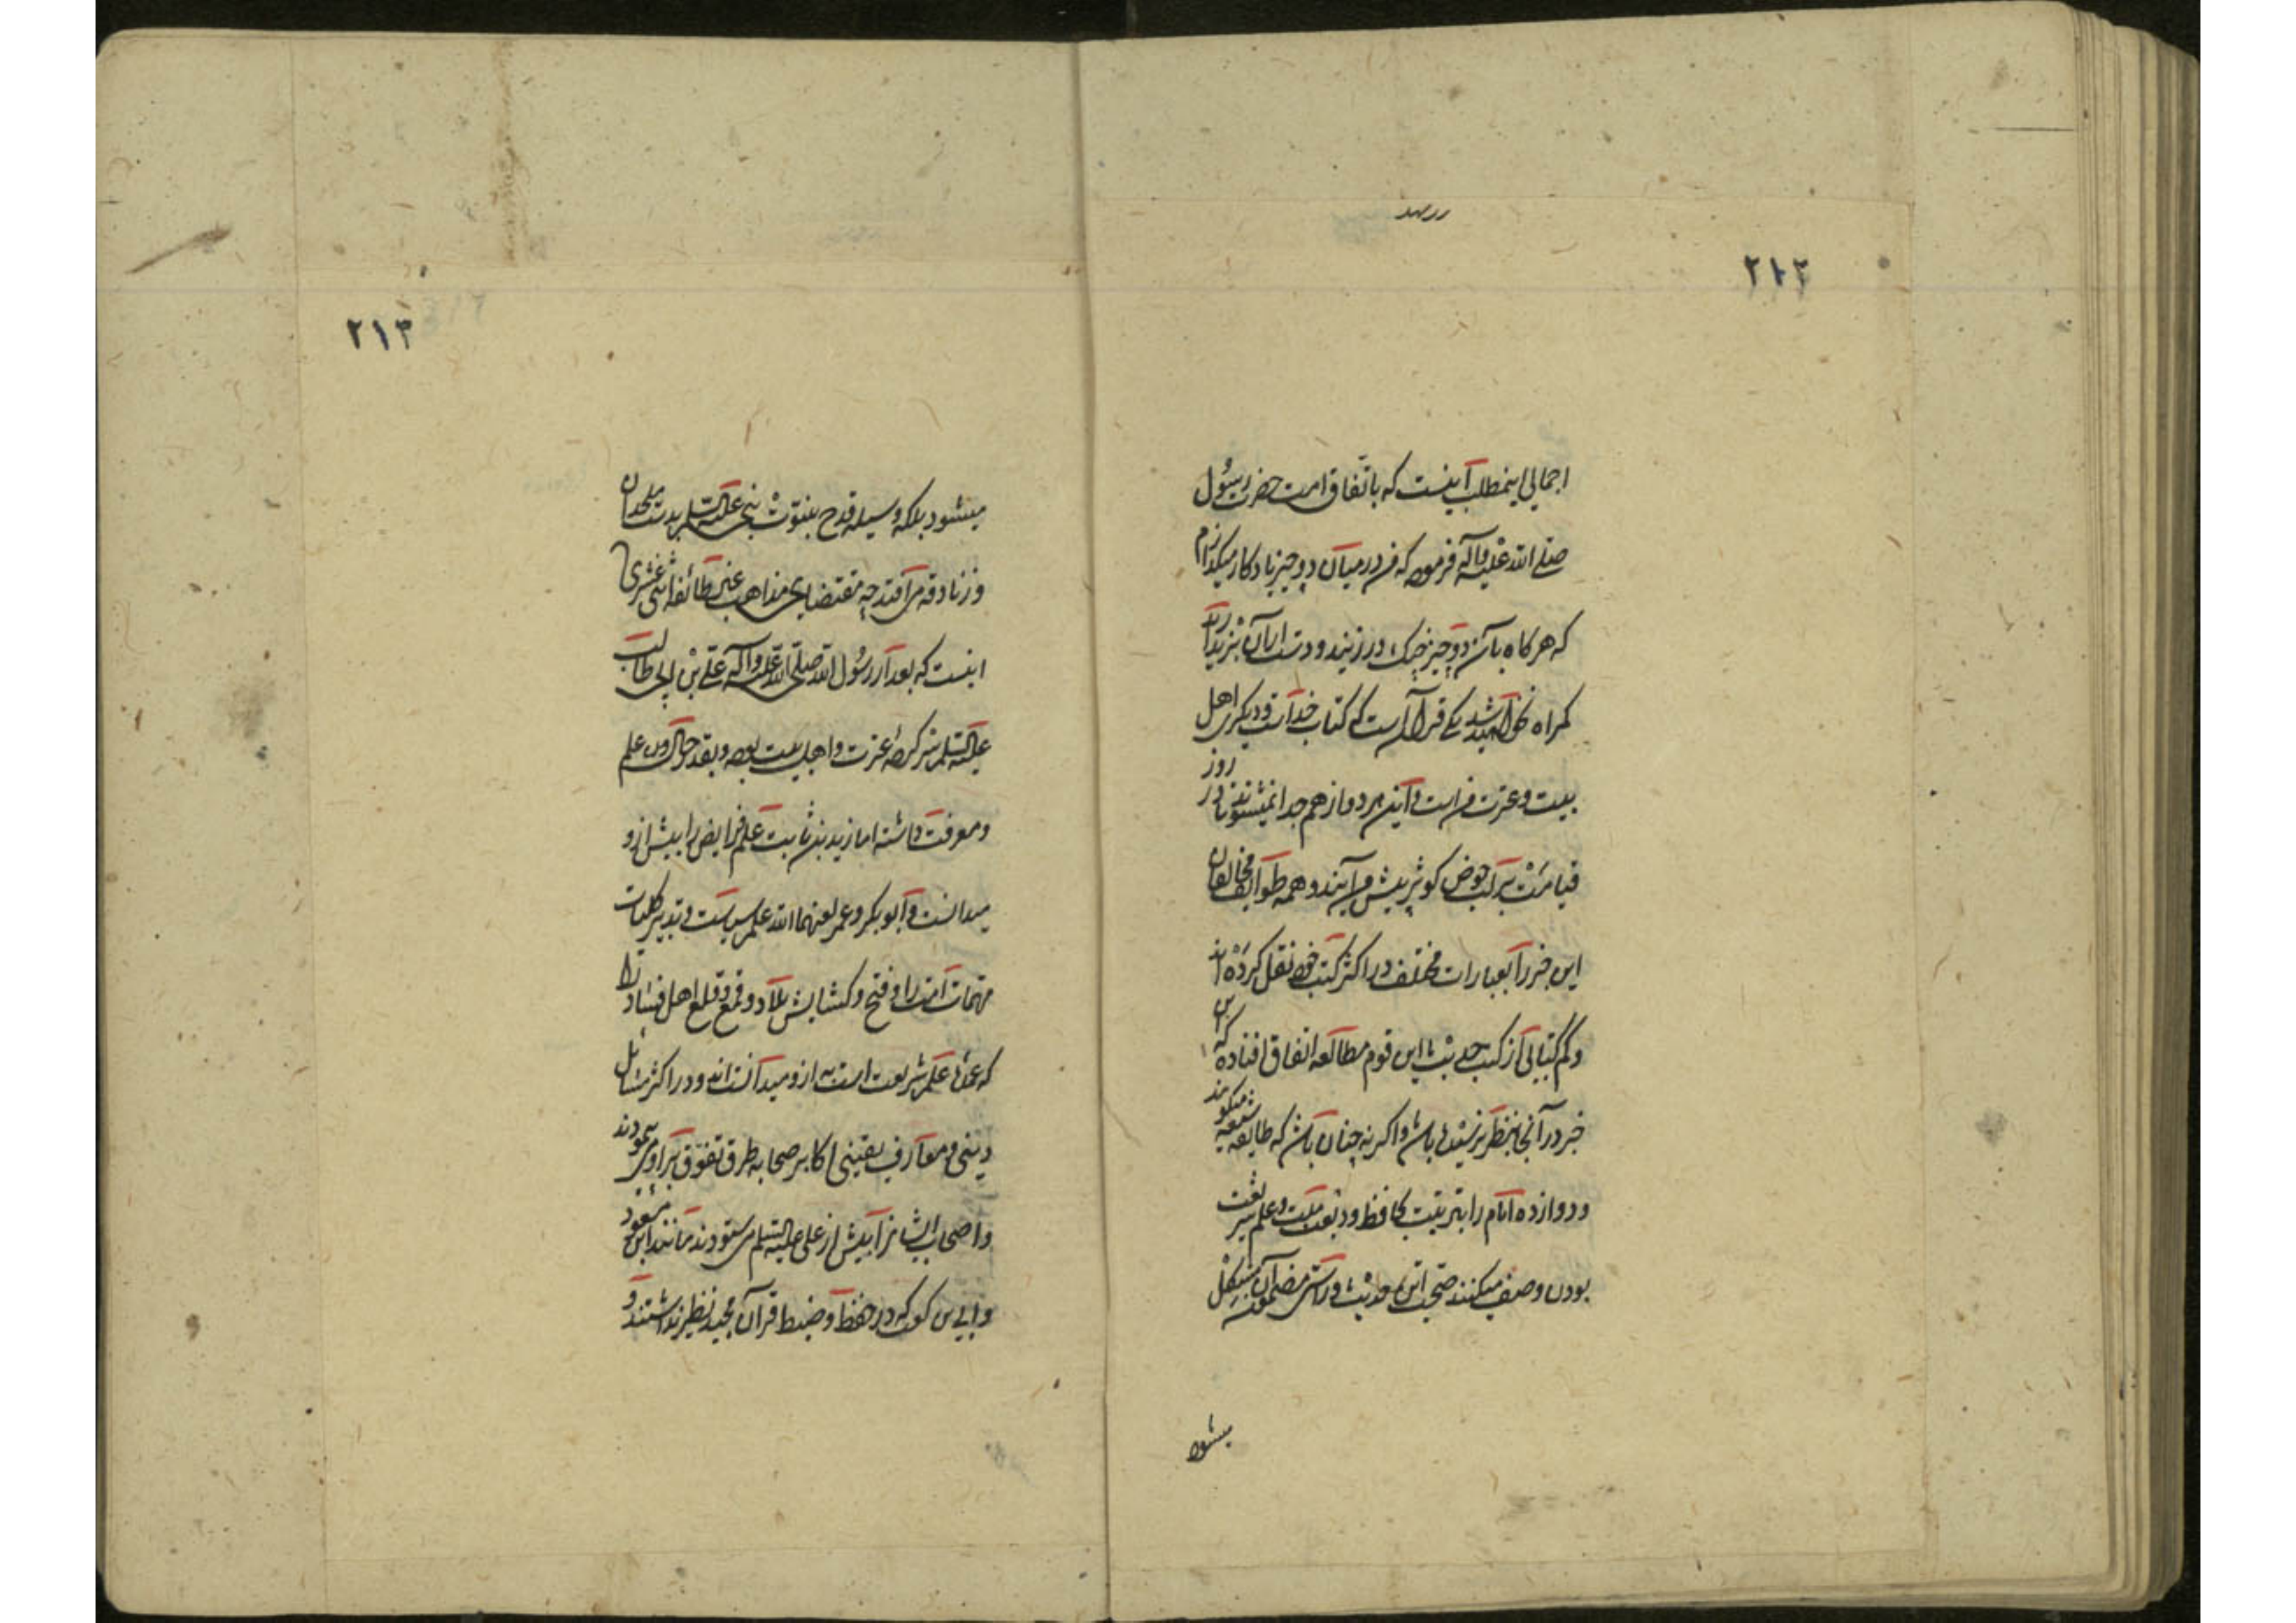 ۲۱۲
اجمالی اینمطلب آینست که باتفاق امت حضرت رسول
صلی الله علیه وآله فرموده که من در میان دو چیز یادکار میکذارم
که هرکاه بآن دو چیز چنک در زنید و دست ازان بر ندارید
کمراه نخواهید شد یکی قرآنست که کتاب خداست و دیکری اهل
بیت و عترت من است و این هر دو از هم جدا نمیشوند تا در روز
قیامت بر لب حوض کوثر پیش من آیند و همه طوایف مخالفان
این خبر را بعبارات مختلف در اکثر کتب خود نقل کرده اند
وکم کتابی از کتب حدیث این قوم مطالعه اتفاق افتاده که این
خبر در آنجا بنظر نرسیده باشد واکر نه چنان باشد که طایفه شیعه میکویند
ودوازده امام را بترتیب حافظ ودین وملت وعلم شریعت
بودن وصف میکنند صحت این حدیث وراستی مضمون آن مشکل
میشود
۲۱۳
میشود بلکه وسیله قدح بنبوت نبی علیه السلم بدست ملحدان
وزنادقه می افتد چه مقتضای مذاهب غیر طائفه اثنی عشری
اینست که بعد از رسول الله صلی الله علیه وآله علی بن ابی طالب
علیه السلم سر کرده عترت واهل بیت بوده وبقدر حال خود علم
ومعرفت داشته اما زید بن ثابت علم فرایض را بیش ازو
میدانست وابوبکر وعمر لعنهما الله علم سیاست وتدبیر کلیات
مهمات امت را وفتح وکشایش بلاد وقمع وقلع اهل فساد را
که عمده علم شریعت است به ازو میدانسته اند ودر اکثر مسائل
دینی ومعارف یقینی اکابر صحابه طرق تفوق بر او می نمودند
واصحاب ایشانرا بیش از علی علیه السلم می ستودند مانند ابن مسعود
وابی بن کعب که در حفظ وضبط قرآن مجید نظیر نداشتند و